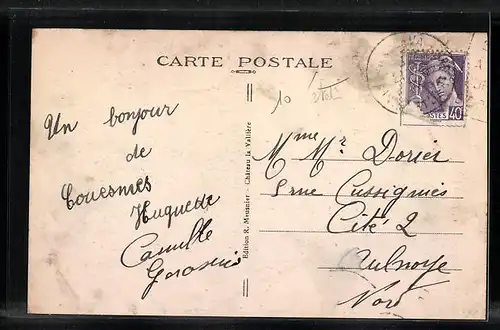 CARTE POSTALE
10
Un bonjour
de
Couesmes
Huguette
Camille
Edition R. Meunier - Château la Vallière
POSTES 40
Mme Mr Dorier
rue Cussignies
Cité 2
Aulnoye
Nord